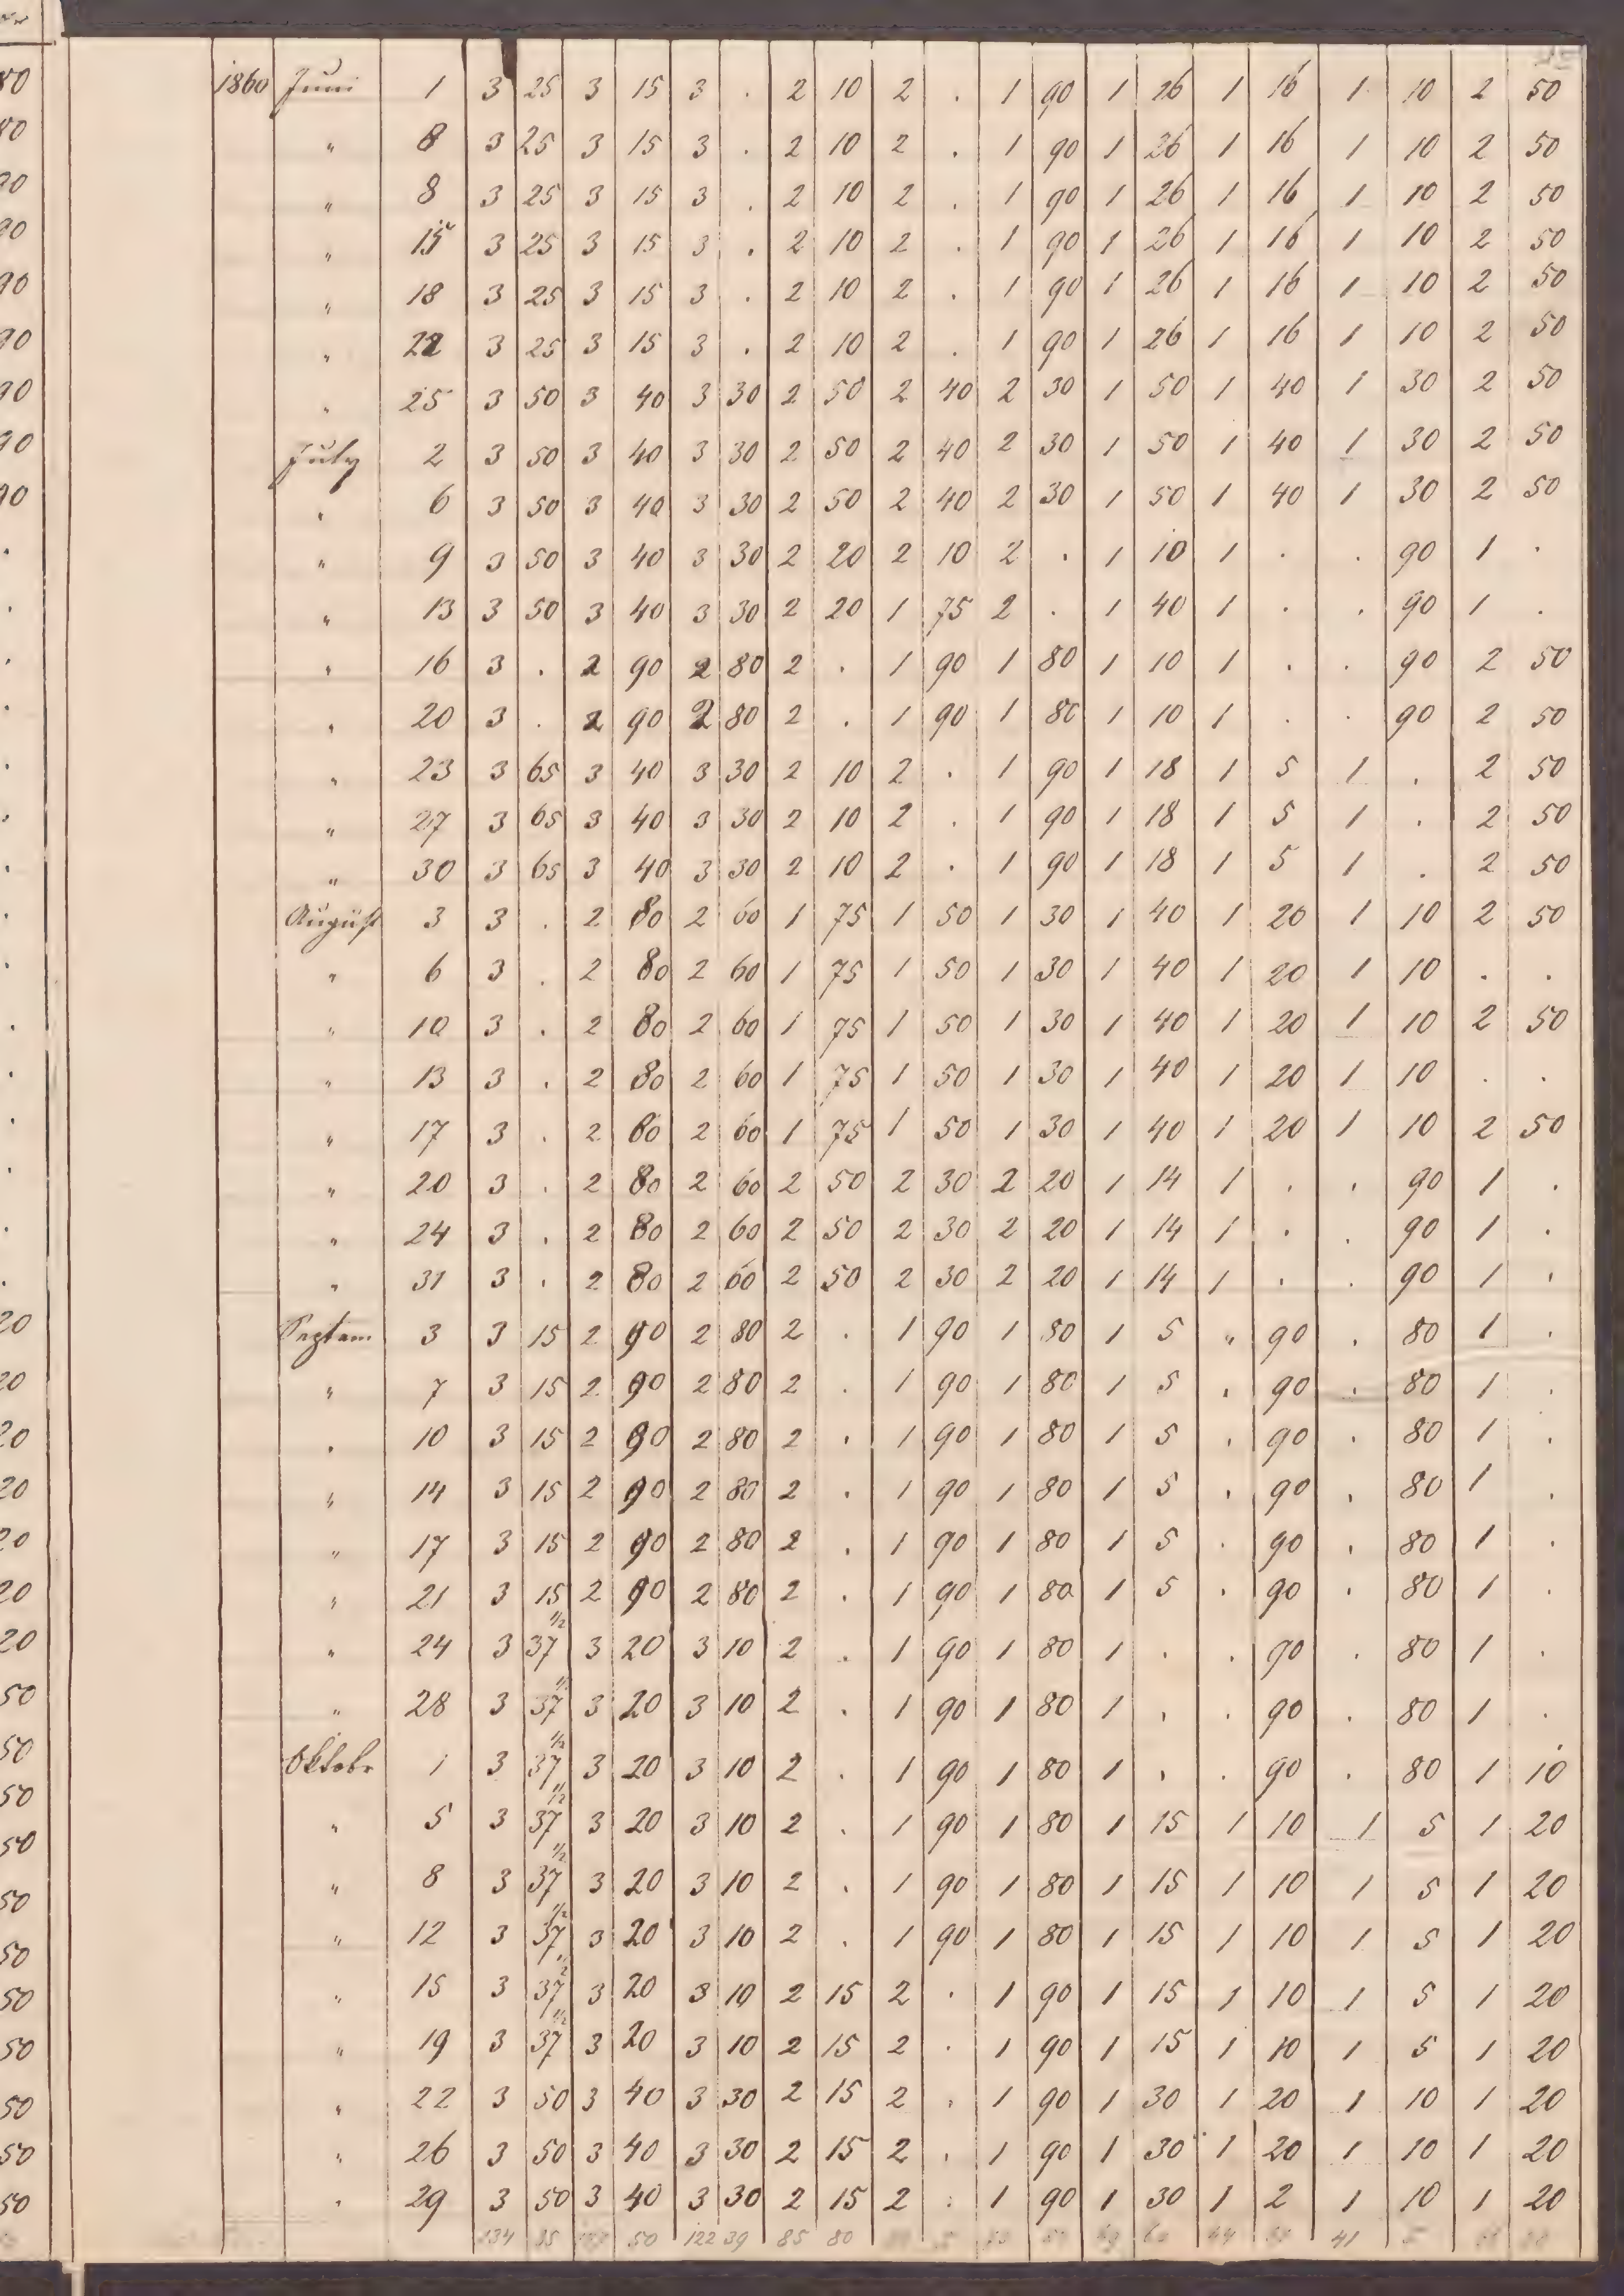 1860 Juni 1 3 25 3 15 3 . 2 10 2 . 1 90 1 26 1 16 1 10 2 50
" 8 3 25 3 15 3 . 2 10 2 . 1 90 1 26 1 16 1 10 2 50
" 8 3 25 3 15 3 . 2 10 2 . 1 90 1 26 1 16 1 10 2 50
" 15 3 25 3 15 3 . 2 10 2 . 1 90 1 26 1 16 1 10 2 50
" 18 3 25 3 15 3 . 2 10 2 . 1 90 1 26 1 16 1 10 2 50
" 22 3 25 3 15 3 . 2 10 2 . 1 90 1 26 1 16 1 10 2 50
" 25 3 50 3 40 3 30 2 50 2 40 2 30 1 50 1 40 1 30 2 50
July 2 3 50 3 40 3 30 2 50 2 40 2 30 1 50 1 40 1 30 2 50
" 6 3 50 3 40 3 30 2 50 2 40 2 30 1 50 1 40 1 30 2 50
" 9 3 50 3 40 3 30 2 20 2 10 2 . 1 10 1 . . 90 1 .
" 13 3 50 3 40 3 30 2 20 1 75 2 . 1 40 1 . . 90 1 .
" 16 3 . 2 90 2 80 2 . 1 90 1 80 1 10 1 . . 90 2 50
" 20 3 . 2 90 2 80 2 . 1 90 1 80 1 10 1 . . 90 2 50
" 23 3 65 3 40 3 30 2 10 2 . 1 90 1 18 1 5 1 . 2 50
" 27 3 65 3 40 3 30 2 10 2 . 1 90 1 18 1 5 1 . 2 50
" 30 3 65 3 40 3 30 2 10 2 . 1 90 1 18 1 5 1 . 2 50
August 3 3 . 2 80 2 60 1 75 1 50 1 30 1 40 1 20 1 10 2 50
" 6 3 . 2 80 2 60 1 75 1 50 1 30 1 40 1 20 1 10 . .
" 10 3 . 2 80 2 60 1 75 1 50 1 30 1 40 1 20 1 10 2 50
" 13 3 . 2 80 2 60 1 75 1 50 1 30 1 40 1 20 1 10 . .
" 17 3 . 2 80 2 60 1 75 1 50 1 30 1 40 1 20 1 10 2 50
" 20 3 . 2 80 2 60 2 50 2 30 2 20 1 14 1 . . 90 1 .
" 24 3 . 2 80 2 60 2 50 2 30 2 20 1 14 1 . . 90 1 .
" 31 3 . 2 80 2 60 2 50 2 30 2 20 1 14 1 . . 90 1 .
Septem 3 3 15 2 90 2 80 2 . 1 90 1 80 1 5 " 90 . 80 1 .
" 7 3 15 2 90 2 80 2 . 1 90 1 80 1 5 . 90 . 80 1 .
" 10 3 15 2 90 2 80 2 . 1 90 1 80 1 5 . 90 . 80 1 .
" 14 3 15 2 90 2 80 2 . 1 90 1 80 1 5 . 90 . 80 1 .
" 17 3 15 2 90 2 80 2 . 1 90 1 80 1 5 . 90 . 80 1 .
" 21 3 15 2 90 2 80 2 . 1 90 1 80 1 5 . 90 . 80 1 .
" 24 3 37 1/2 3 20 3 10 2 . 1 90 1 80 1 . . 90 . 80 1 .
" 28 3 37 1/2 3 20 3 10 2 . 1 90 1 80 1 . . 90 . 80 1 .
Oktobr 1 3 37 1/2 3 20 3 10 2 . 1 90 1 80 1 . . 90 . 80 1 10
" 5 3 37 1/2 3 20 3 10 2 . 1 90 1 80 1 15 1 10 1 5 1 20
" 8 3 37 1/2 3 20 3 10 2 . 1 90 1 80 1 15 1 10 1 5 1 20
" 12 3 37 1/2 3 20 3 10 2 . 1 90 1 80 1 15 1 10 1 5 1 20
" 15 3 37 1/2 3 20 3 10 2 15 2 . 1 90 1 15 1 10 1 5 1 20
" 19 3 37 1/2 3 20 3 10 2 15 2 . 1 90 1 15 1 10 1 5 1 20
" 22 3 50 3 40 3 30 2 15 2 . 1 90 1 30 1 20 1 10 1 20
" 26 3 50 3 40 3 30 2 15 2 . 1 90 1 30 1 20 1 10 1 20
" 29 3 50 3 40 3 30 2 15 2 . 1 90 1 30 1 2 1 10 1 20
134 50 122 39 85 80 41